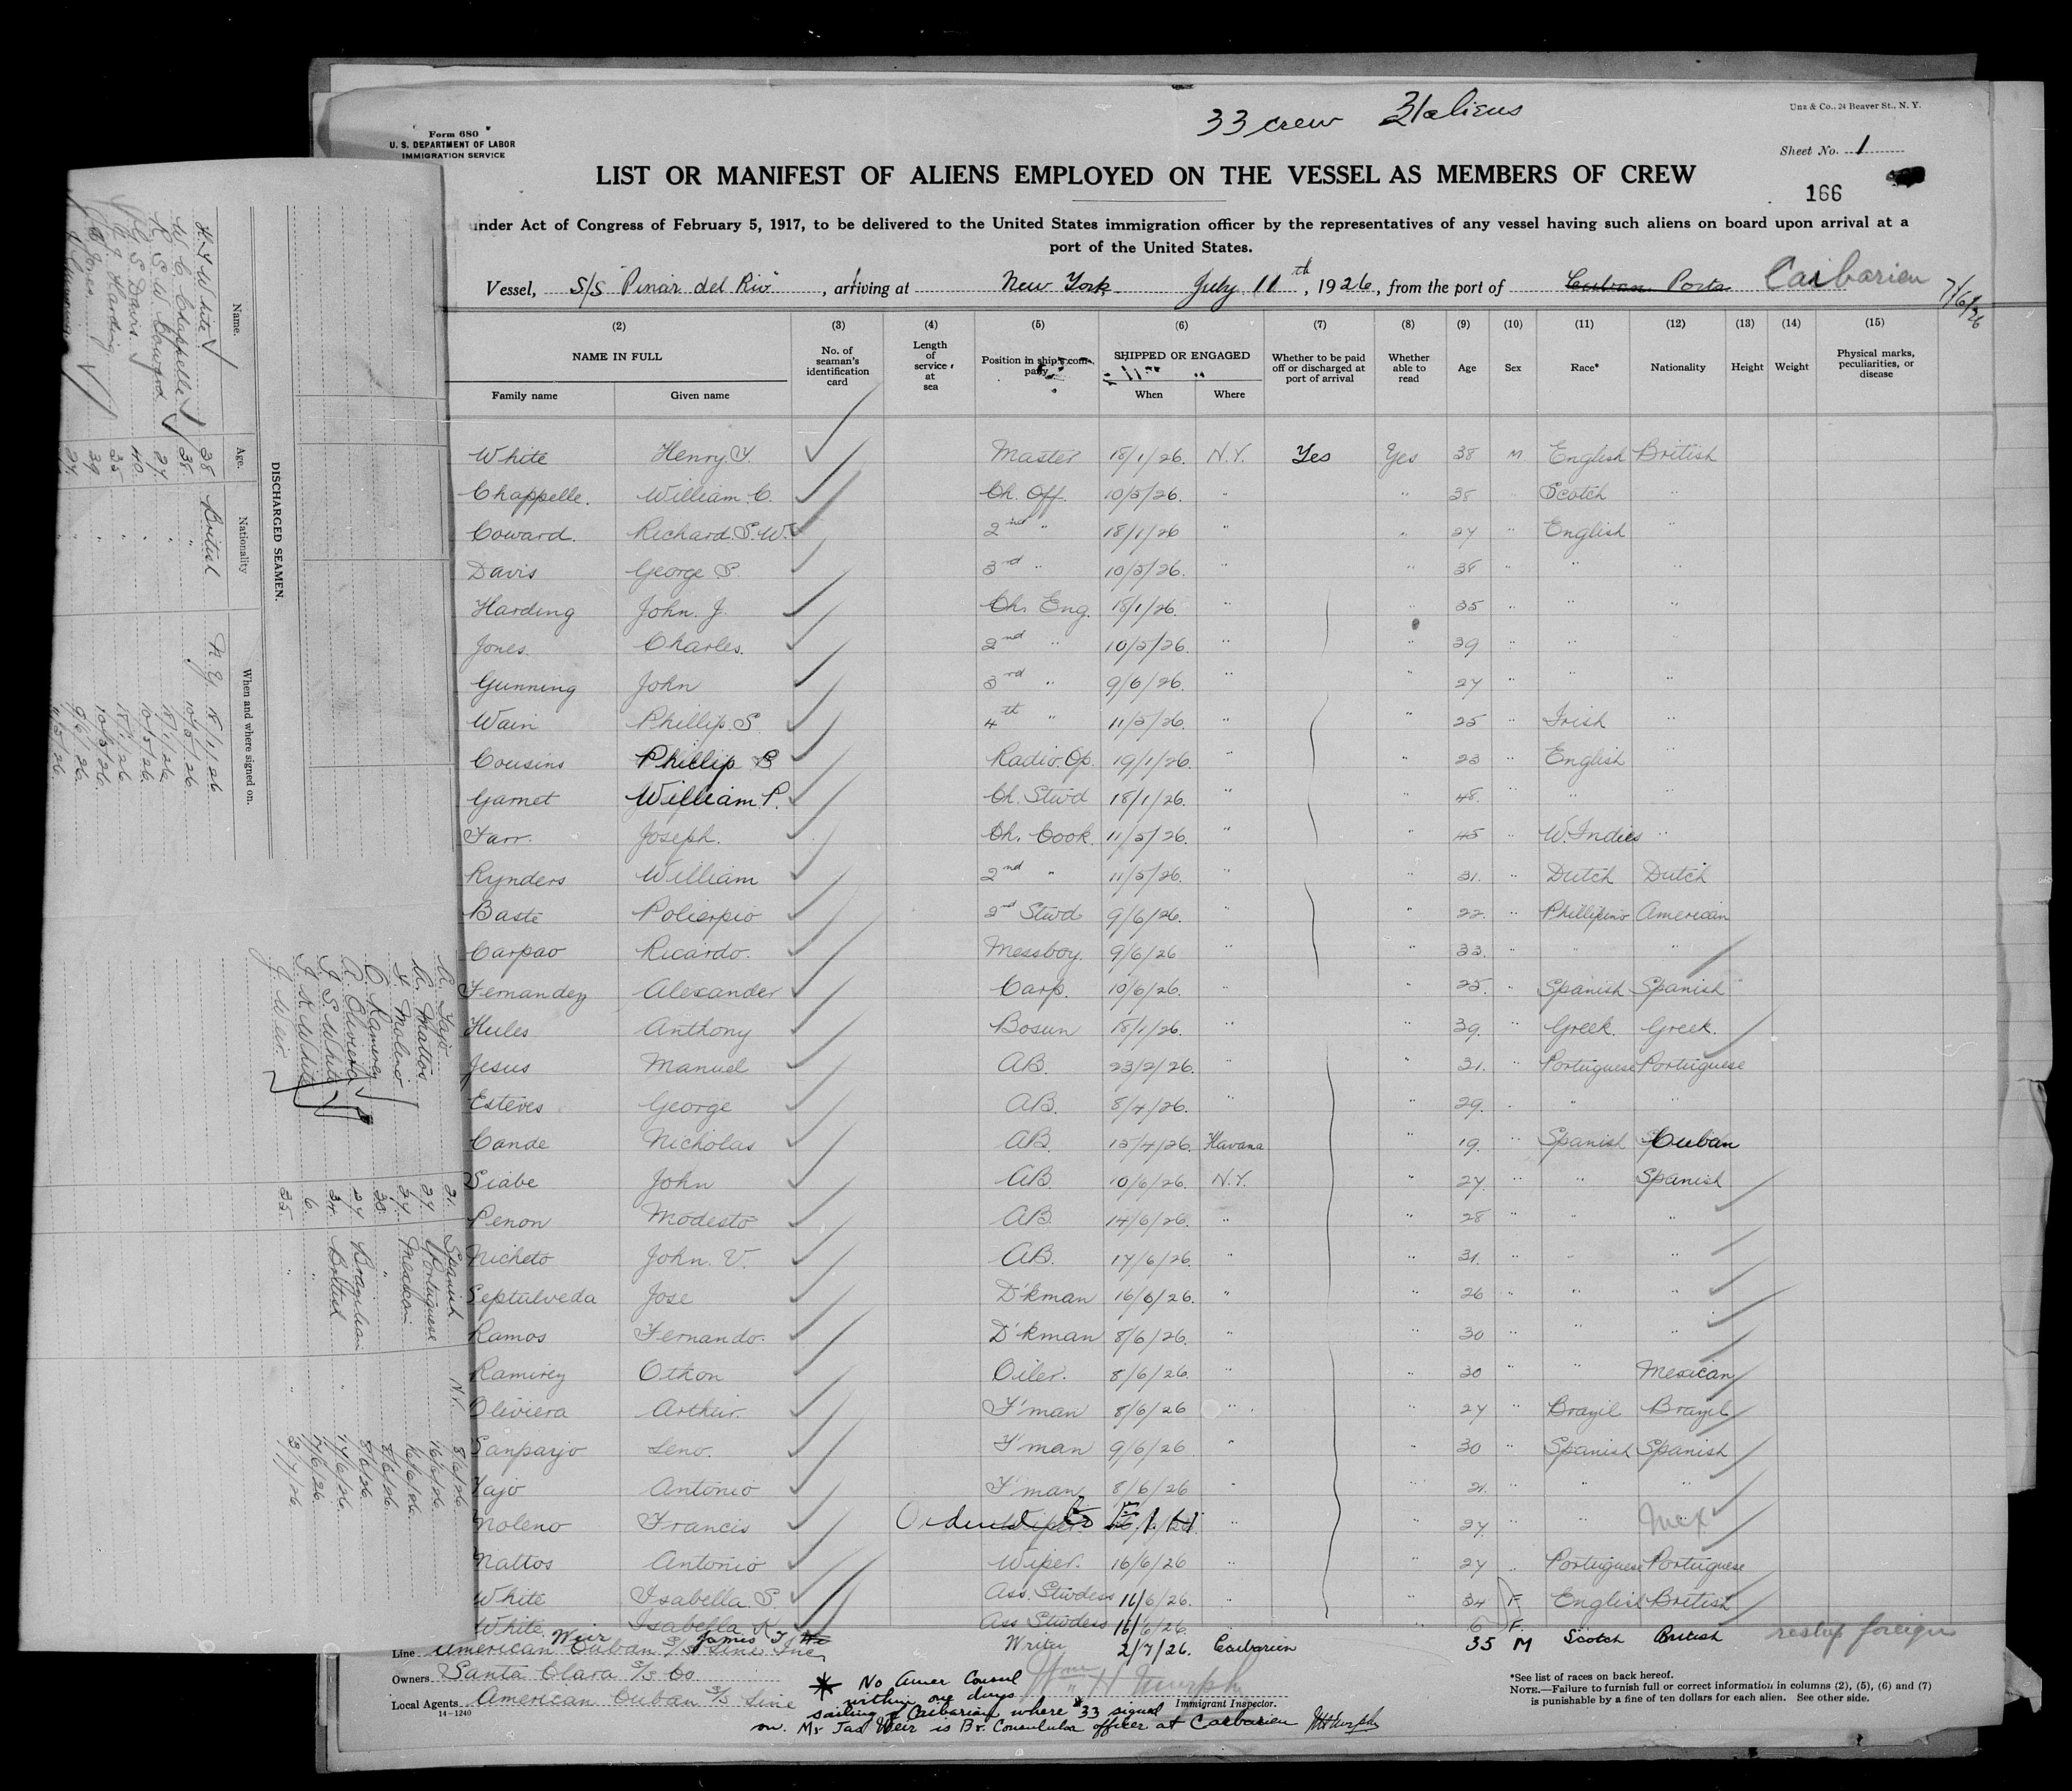 33 crew 31 aliens
Unz & Co., 24 Beaver St., N. Y.
Form 680
U. S. DEPARTMENT OF LABOR
IMMIGRATION SERVICE
Sheet No. 1
LIST OR MANIFEST OF ALIENS EMPLOYED ON THE VESSEL AS MEMBERS OF CREW
166
under Act of Congress of February 5, 1917, to be delivered to the United States immigration officer by the representatives of any vessel having such aliens on board upon arrival at a
port of the United States.
Vessel, S/S "Pinar del Rio", arriving at New York July 11th, 1926, from the port of Cuban Ports Caibarien 7/6/26
(2) (3) (4) (5) (6) (7) (8) (9) (10) (11) (12) (13) (14) (15)
NAME IN FULL No. of seaman's identification card Length of service at sea Position in ship's company SHIPPED OR ENGAGED Whether to be paid off or discharged at port of arrival Whether able to read Age Sex Race* Nationality Height Weight Physical marks, peculiarities, or disease
Family name Given name When Where
White Henry Y. Master 18/1/26. N.Y. Yes Yes 38 M English British
Chappelle. William C. Ch. Off. 10/5/26. " " 38 " Scotch "
Coward. Richard S.W. 2nd " 18/1/26 " 27 " English "
Davis George S. 3rd " 10/5/26. " " 38 " " "
Harding John. J. Ch. Eng. 18/1/26. " " 35 " " "
Jones. Charles. 2nd " 10/5/26. " " 39 " " "
Gunning John 3rd " 9/6/26. " " 27 " " "
Wain Phillip S. 4th " 11/5/26. " " 25 " Irish "
Cousins Phillip S Radio Op. 19/1/26. " " 23 " English "
Garnet William P. Ch. Stwd 18/1/26. " " 48. " " "
Farr. Joseph. Ch. Cook. 11/5/26. " " 45 " W. Indies "
Rynders William 2nd " 11/5/26. " " 31. " Dutch Dutch
Baste Policrpio 2nd Stwd 9/6/26. " " 22. " Phillipino American
Carpao Ricardo. Messboy. 9/6/26 " " 33. " " "
Fernandez Alexander Carp. 10/6/26. " " 25. " Spanish Spanish
Hules Anthony Bosun 18/1/26. " " 39. " Greek. Greek.
Jesus Manuel AB. 23/2/26. " " 31. " Portuguese Portuguese
Esteves George AB. 8/4/26. " " 29. " " "
Cande Nicholas AB. 15/4/26. Havana " 19. " Spanish Cuban
Siabe John AB. 10/6/26. N.Y. " 27. " " Spanish
Penon Modesto AB. 14/6/26. " " 28 " " "
Nicheto John V. AB. 17/6/26 " " 31. " " "
Septulveda Jose D'kman 16/6/26. " " 26 " " "
Ramos Fernando. D'kman 8/6/26. " " 30 " " "
Ramirez Othon Oiler. 8/6/26. " " 30 " " Mexican
Oliviera Arthur. F'man 8/6/26 " " 27 " Brazil Brazil
Sanparjo Leno. F'man 9/6/26 " " 30 " Spanish Spanish
Yajo Antonio F'man 8/6/26 " " 21. " " "
Moleno Francis Ordered to E.I. Wiper " " 27 " " Mex
Mattos Antonio Wiper. 16/6/26 " " 27 " Portuguese Portuguese
White Isabella S. Ass. Stwdess 16/6/26. " " 34 F. English British
White Isabella K. Ass Stwdess 16/6/26. " " 6 F.
Weir James Y. Writer 2/7/26. Caibarien 35 M Scotch British reship foreign
Line American Cuban S/S Line Inc,
Owners Santa Clara S/S Co
Local Agents American Cuban S/S Line
14-1240
* No Amer Consul
within one days
sailing of Caibarien where #33 signed
on. Mr Jas Weir is Br. Consular officer at Caibarien WHMurphy
Wm H Murphy
Immigrant Inspector.
*See list of races on back hereof.
NOTE.—Failure to furnish full or correct information in columns (2), (5), (6) and (7)
is punishable by a fine of ten dollars for each alien. See other side.
DISCHARGED SEAMEN.
Name. Age. Nationality When and where signed on.
H. Y. White 38 British N.Y. 18/1/26
W. C. Chappelle 38. " 10/5/26.
R. S. W. Coward 27. " 18/1/26.
G. S. Davis. 40. " 10/5/26.
J. J. Harding 35. " 18/1/26.
C. Jones 39. " 10/5/26.
J. Gunning 27. " 9/6/26.
A. Yajo 21. Spanish N.Y. 8/6/26.
A. Mattos 27 Portuguese 16/6/26.
F. Moleno 27. Mexican 16/6/26.
O. Ramirez 30. " 8/6/26.
A. Oliviera 27 Brazilian 8/6/26.
I. S. White 34. British " 17/6/26.
I. K. White 6. " 17/6/26.
J. Weir. 35. " " 3/7/26.